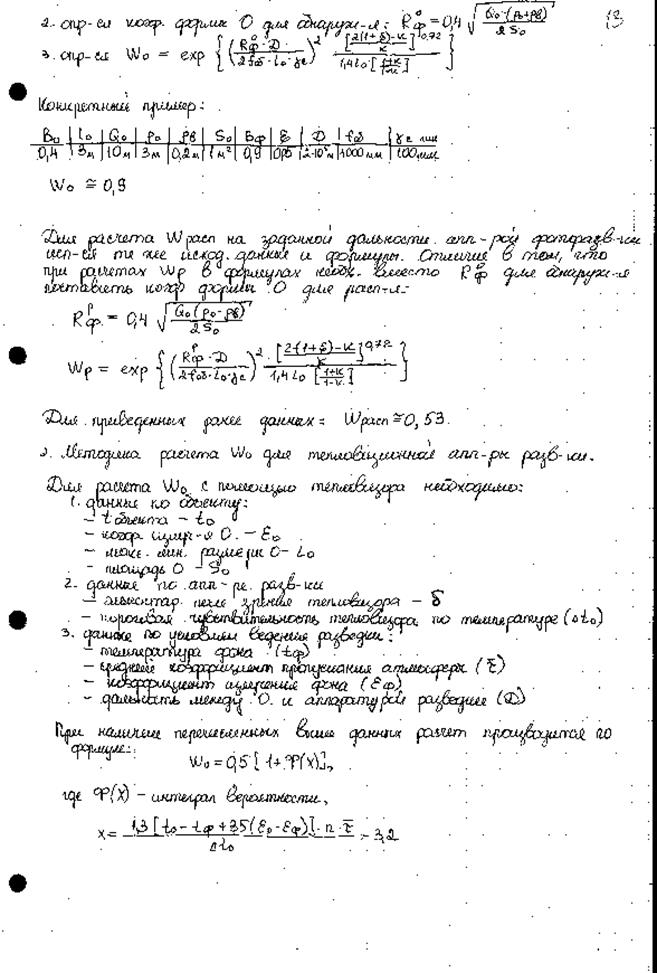 13
2. опр-ся коэф. формы О для обнаруж-я: R⁰ф = 0,4 √(G₀·(ρ₀+ρв) / 2S₀)
3. опр-ся W₀ = exp {(R⁰ф·D / 2fоб·L₀·γе)² [2(1+ε)-к / к]^0,72 / 1,4L₀·[1+к / 1-к]}
Конкретный пример:
B₀ | L₀ | G₀ | ρ₀ | ρв | S₀ | Бф | ε | D | fоб | γе лин
0,4 | 3м | 10м | 3м | 0,2м | 1м² | 0,9 | 0,15 | 2·10⁵м | 1000мм | 100лин
W₀ ≅ 0,9
Для расчета Wрасп на заданной дальности апп-рой фоторазв-ки
исп-ся те же исход. данные и формулы. Отличие в том, что
при расчетах Wр в формулах необх. вместо R⁰ф для обнаруж-я
поставить коэф формы О для расп-я:
Rᵖф = 0,4 √(G₀(ρ₀-ρв) / 2S₀)
Wр = exp {(Rᵖф·D / 2fоб·L₀·γе)² · [2(1+ε)-к / к]^0,72 / 1,4L₀ [1+к / 1-к]}
Для приведенных ранее данных: Wрасп ≅ 0,53.
2. Методика расчета W₀ для тепловизионной апп-ры разв-ки.
Для расчета W₀ с помощью тепловизора необходимо:
1. данные по объекту:
- t объекта - t₀
- коэф излуч-я О. - Ɛ₀
- макс. лин. размеры О - L₀
- площадь О - S₀
2. данные по апп-ре. разв-ки
- элементар. поле зрения тепловизора - δ
- пороговая чувствительность тепловизора по температуре (∆t₀)
3. данные по условиям ведения разведки:
- температура фона (tф)
- средний коэффициент пропускания атмосферы (τ̅)
- коэффициент излучения фона (Ɛф)
- дальность между О. и аппаратурой разведки (D)
При наличии перечисленных выше данных расчет производится по
формуле:
W₀ = 0,5 [1+Ф(X)],
где Ф(X) - интеграл вероятности,
x = 1,3 [t₀ - tф + 35(Ɛ₀ - Ɛф)]·n·τ̅ / ∆t₀ - 3,2